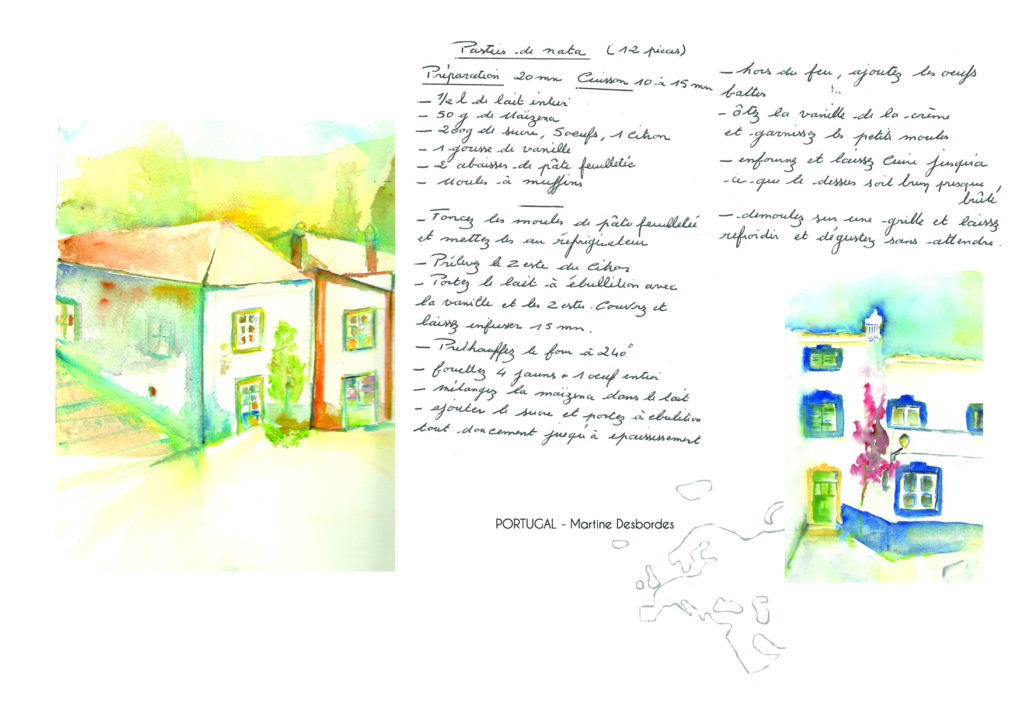 Pasteis de nata (12 pieces)
Préparation 20 mn Cuisson 10 à 15 mn
– 1/2 l de lait entier
– 50 g de Maïzena
– 200g de sucre, 5 oeufs, 1 citron
– 1 gousse de vanille
– 2 abaisses de pâte feuilletée
– Moules à muffins
– Foncez les moules de pâte feuilletée
et mettez les au réfrigirateur
– Prélevez le zeste du citron
– Portez le lait à ébullition avec
la vanille et les zestes. Couvrez et
laissez infuser 15 mn.
– Préchauffez le four à 240°
– fouettez 4 jaunes + 1 oeuf entier
– mélangez la maïzena dans le lait
– ajouter le sucre et portez à ebulition
tout doucement jusqu'à epaississement
– hors du feu, ajoutez les oeufs
battus
– ôtez la vanille de la crème
et garnissez les petits moules
– enfournez et laissez cuire jusqu'à
ce que le dessus soit brun presque
brûlé
– demoulez sur une grille et laissez
refroidir et dégustez sans attendre.
PORTUGAL - Martine Desbordes